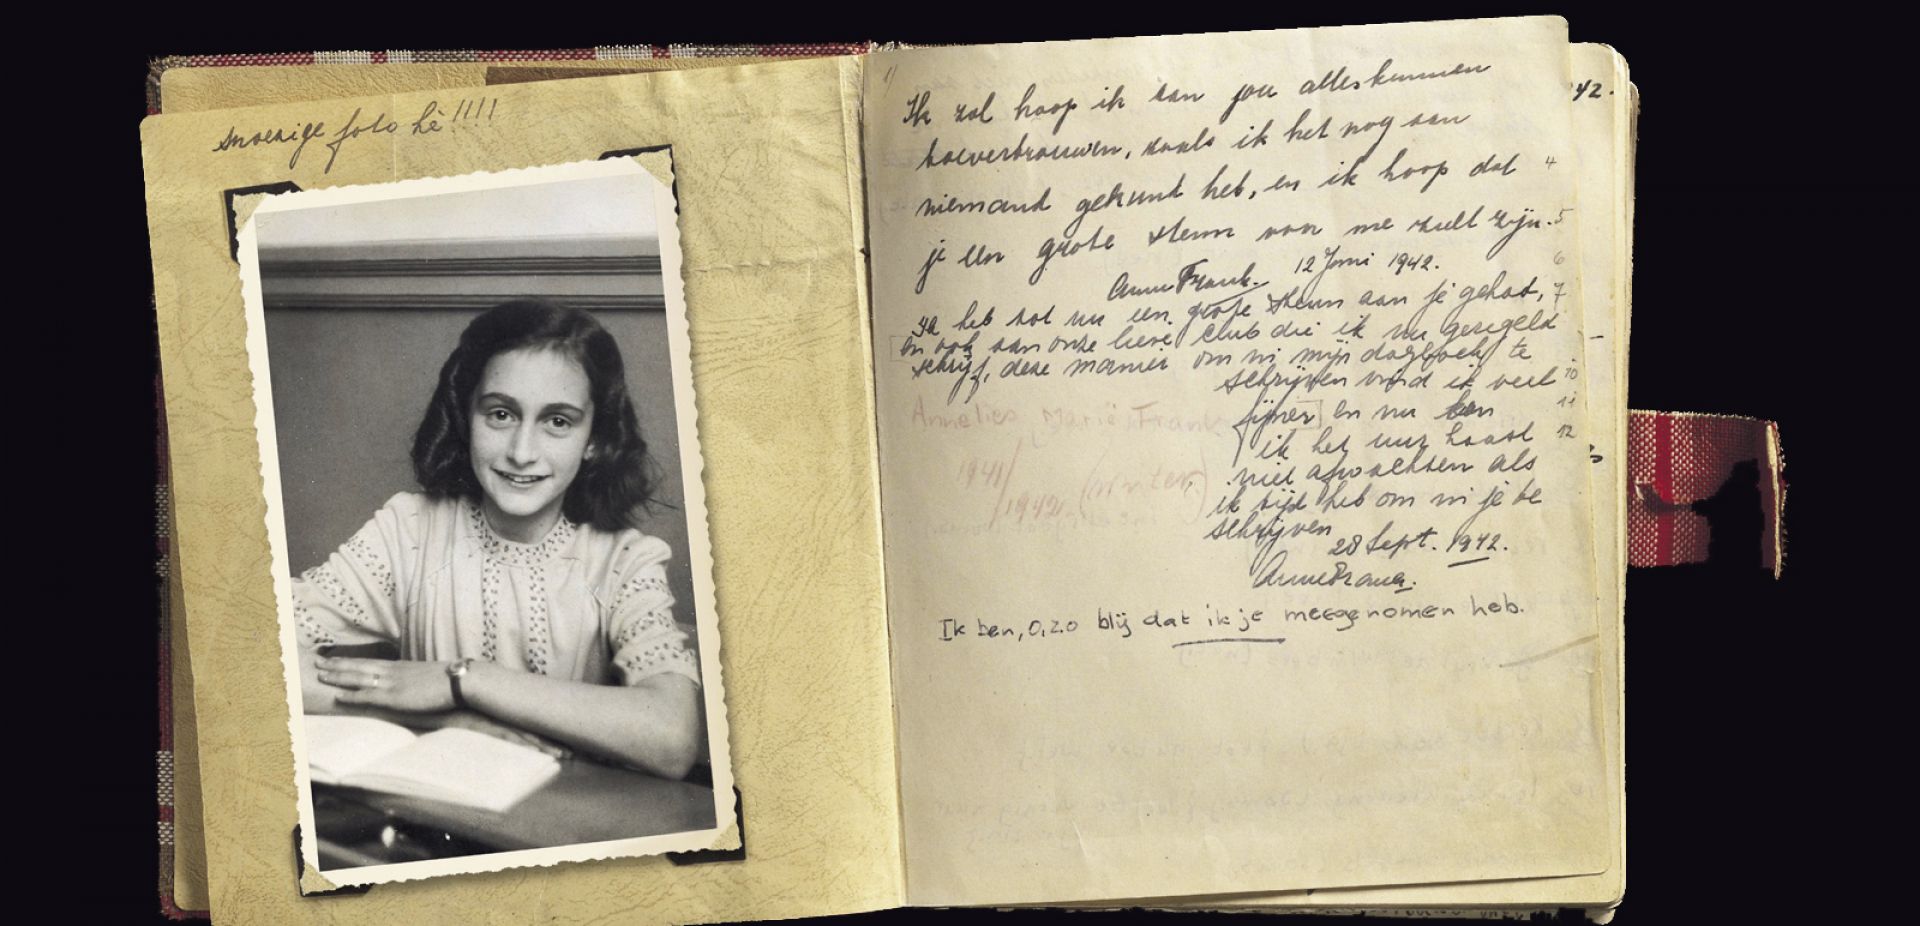 snoezige foto hè!!!!
1)
Ik zal hoop ik aan jou alles kunnen
toevertrouwen, zoals ik het nog aan
niemand gekund heb, en ik hoop dat
je een grote steun voor me zult zijn.
Anne Frank. 12 Juni 1942.
Ik heb tot nu een grote steun aan je gehad,
en ook aan onze lieve club die ik nu geregeld
schrijf, deze manier om in mijn dagboek te
schrijven vind ik veel
fijner en nu ben
ik het uur haast
niet afwachten als
ik tijd heb om in je te
schrijven
28 Sept. 1942.
Anne Frank.
Ik ben, o, zo blij dat ik je meegenomen heb.
Annelies Marie Frank
1941/
1942 (winter)
42.
4
5
6
7
10
11
12